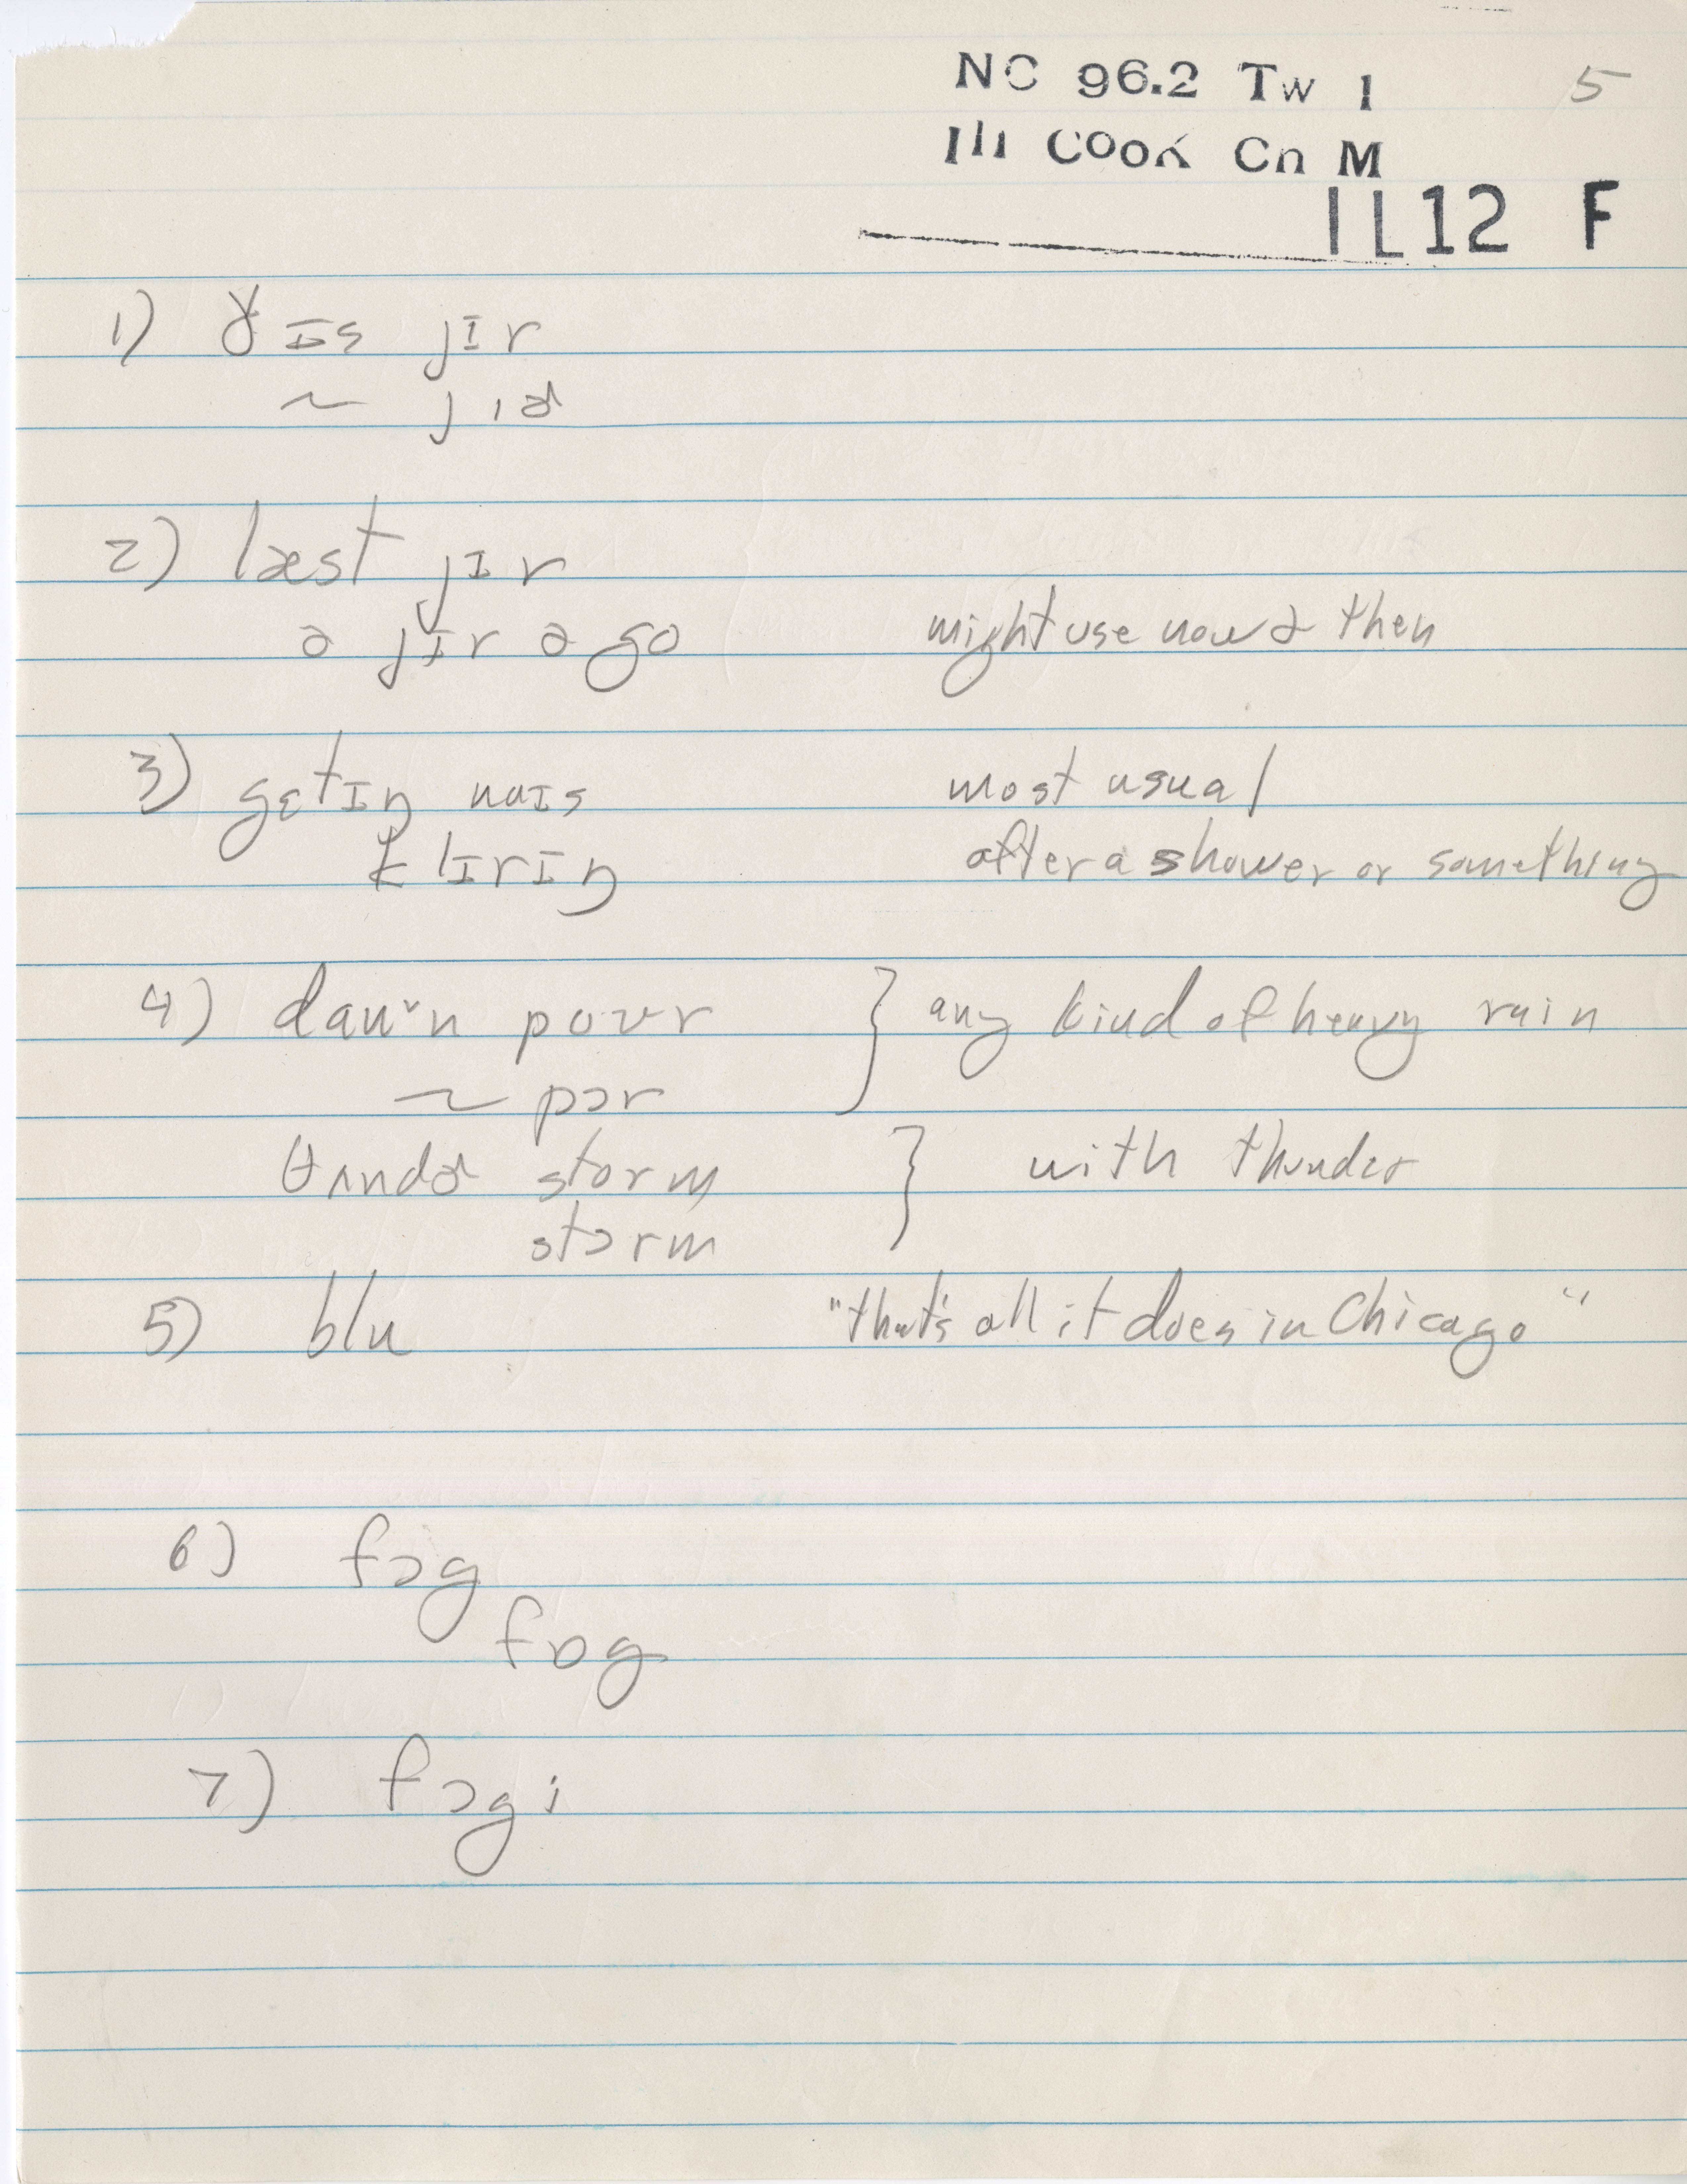 NC 96.2 Tw 1 5
Ill Cook Cn M
IL12 F
1) ðɪs jɪr
~ jɪɚ
2) læst jɪr
ə jɪr ə go might use now & then
3) gɛtɪŋ naɪs most usual
klɪrɪŋ after a shower or something
4) daʊn poʊr } any kind of heavy rain
~ pɔr
θʌndɚ storm } with thunder
stɔrm
5) blu "that's all it does in Chicago"
6) fɔg
fɒg
7) fɔgi